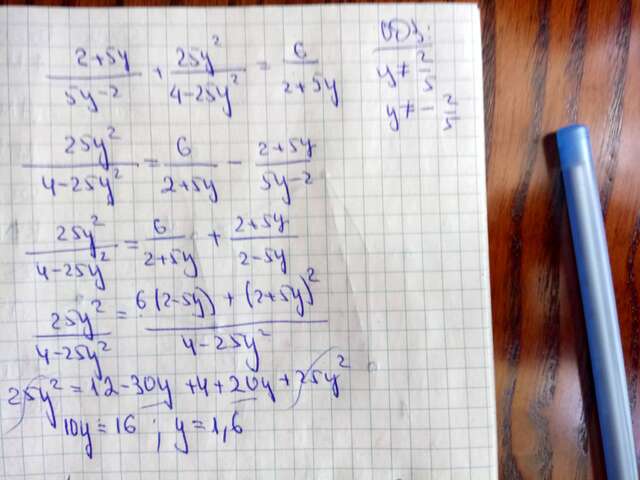 (2+5y)/(5y-2) + 25y²/(4-25y²) = 6/(2+5y)
ОДЗ:
y ≠ 2/5
y ≠ -2/5
25y²/(4-25y²) = 6/(2+5y) - (2+5y)/(5y-2)
25y²/(4-25y²) = 6/(2+5y) + (2+5y)/(2-5y)
25y²/(4-25y²) = (6(2-5y) + (2+5y)²)/(4-25y²)
25y² = 12-30y+4+20y+25y²
10y = 16; y = 1,6